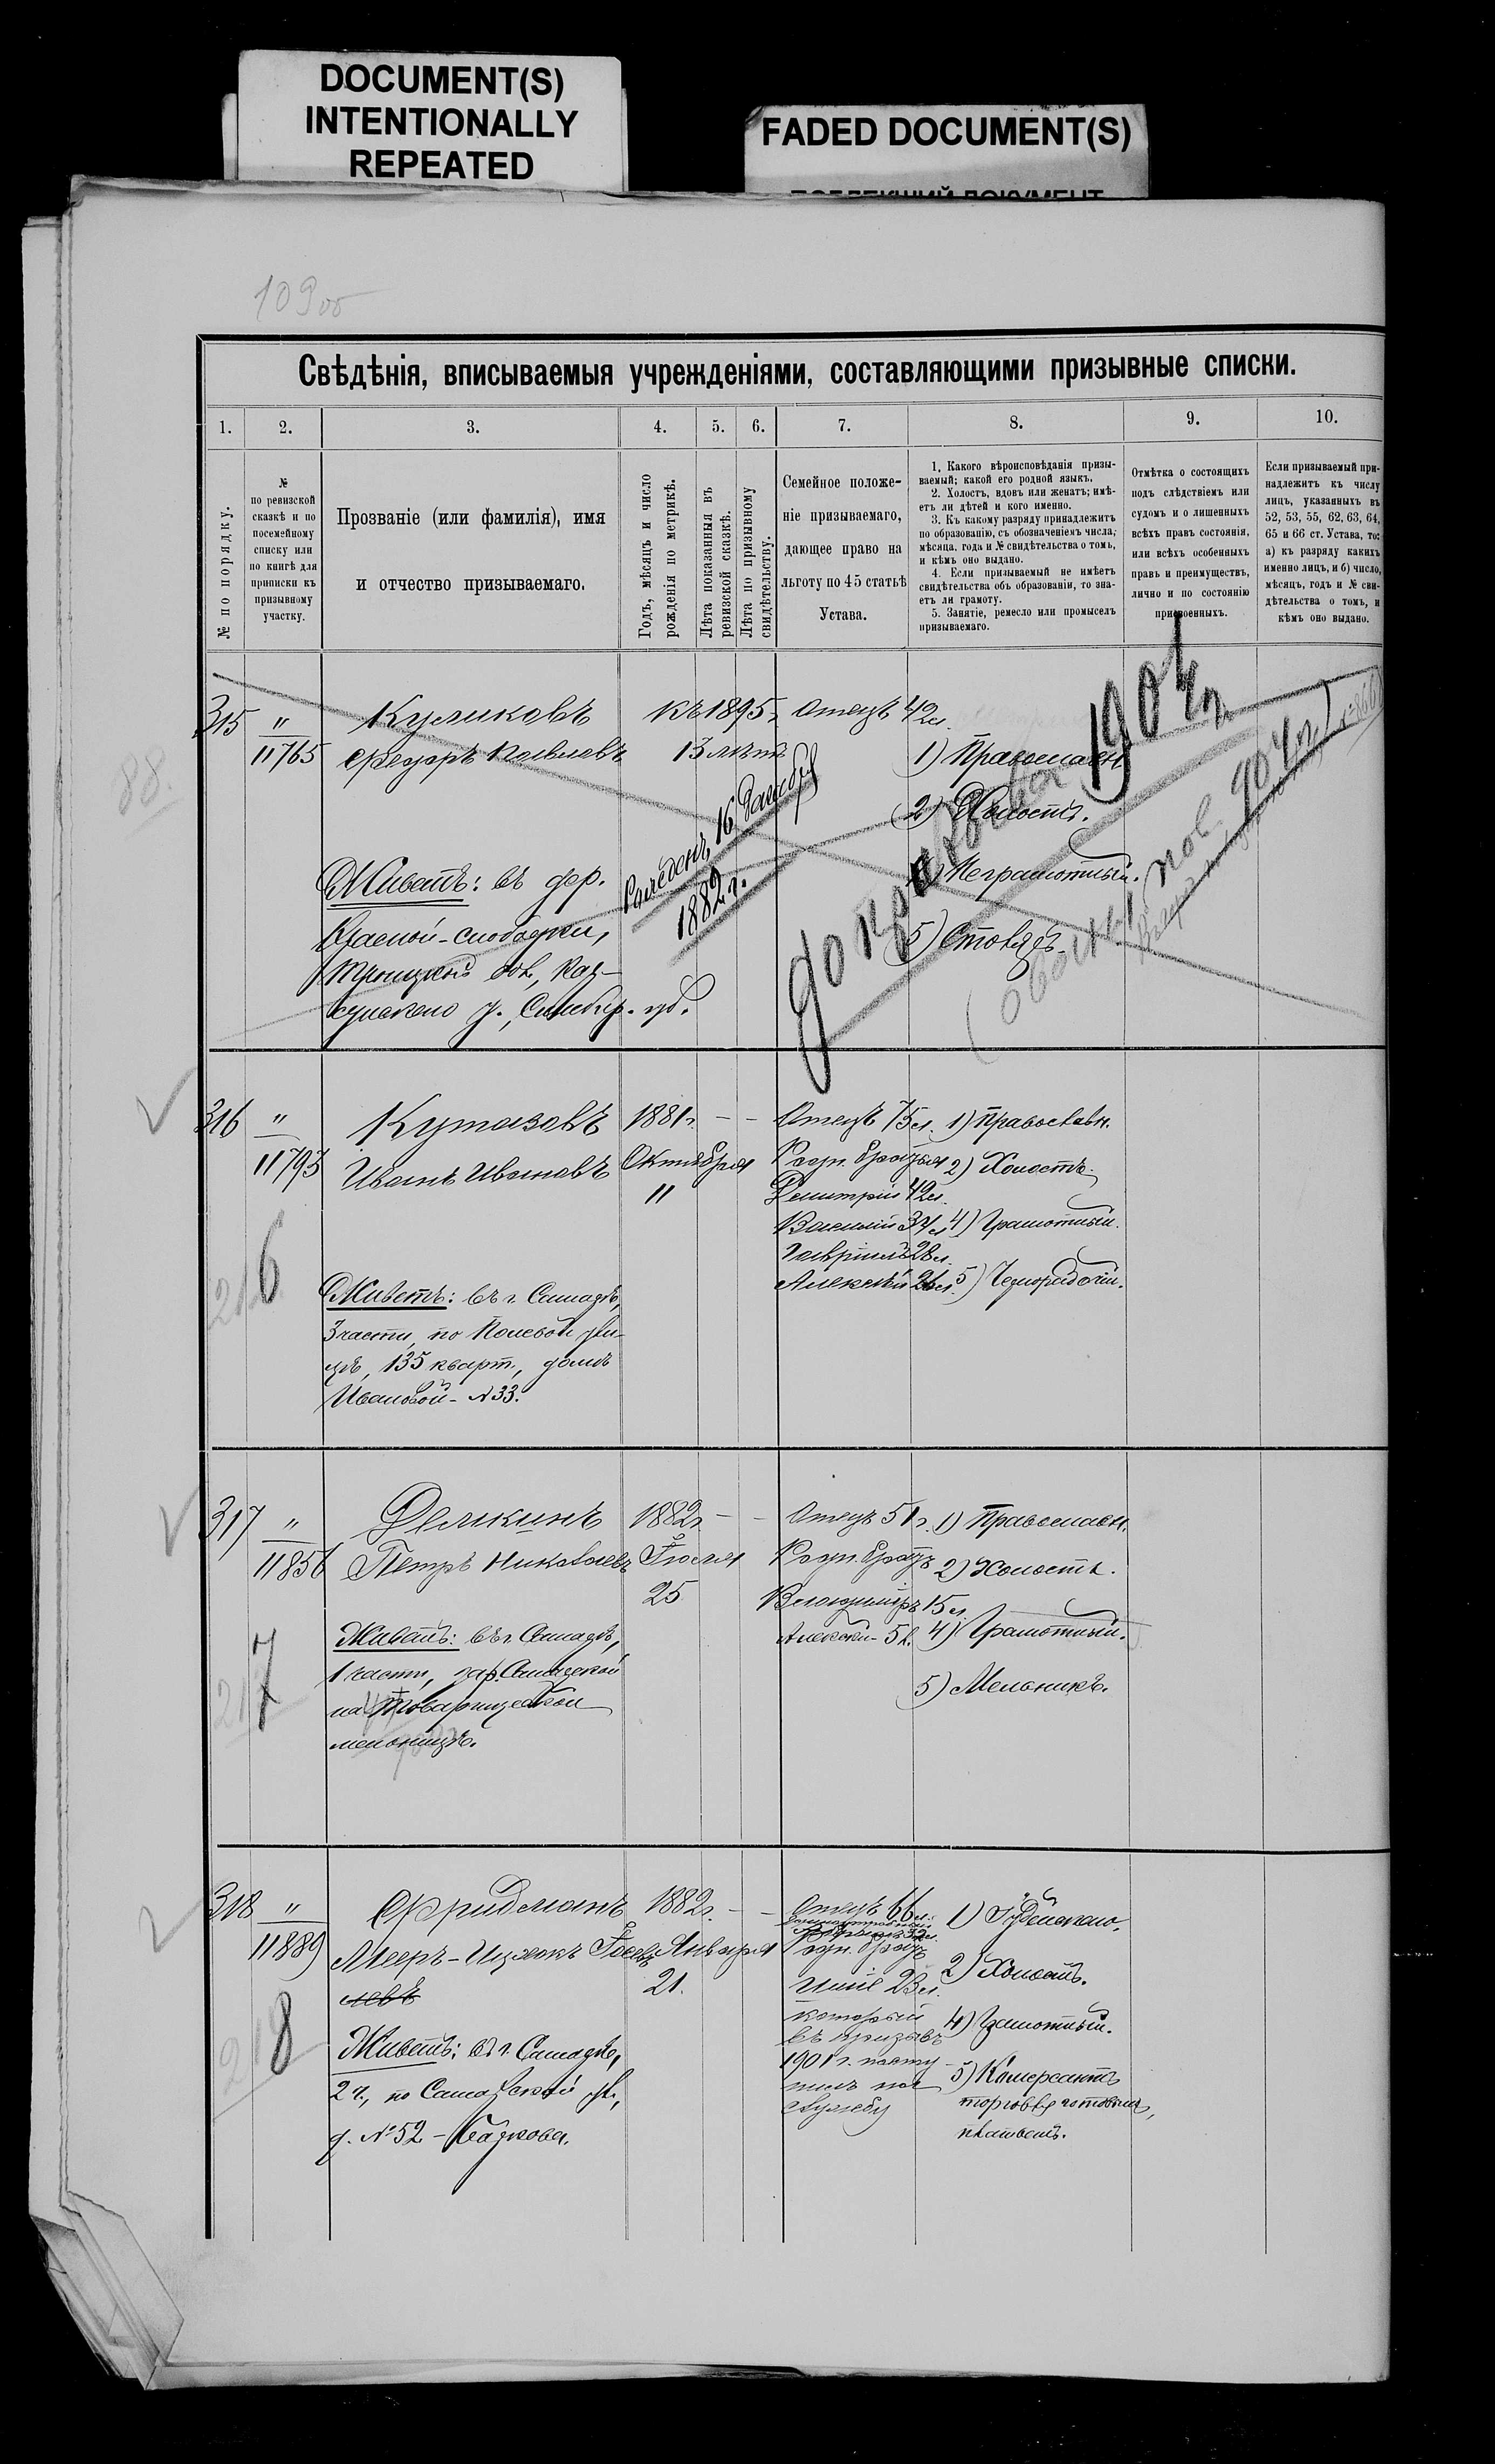 DOCUMENT(S)
INTENTIONALLY
REPEATED
FADED DOCUMENT(S)
109 об
88.
Свѣдѣнія, вписываемыя учрежденіями, составляющими призывные списки.
1. 2. 3. 4. 5. 6. 7. 8. 9. 10.
№ по порядку.
№
по ревизской
сказкѣ и по
посемейному
списку или
по книгѣ для
приписки къ
призывному
участку.
Прозваніе (или фамилія), имя
и отчество призываемаго.
Годъ, мѣсяцъ и число
рожденія по метрикѣ.
Лѣта показанныя въ
ревизской сказкѣ.
Лѣта по призывному
свидѣтельству.
Семейное положе-
ніе призываемаго,
дающее право на
льготу по 45 статьѣ
Устава.
1. Какого вѣроисповѣданія призы-
ваемый; какой его родной языкъ.
2. Холостъ, вдовъ или женатъ; имѣ-
етъ ли дѣтей и кого именно.
3. Къ какому разряду принадлежитъ
по образованію, съ обозначеніемъ числа,
мѣсяца, года и № свидѣтельства о томъ,
и кѣмъ оно выдано.
4. Если призываемый не имѣетъ
свидѣтельства объ образованіи, то зна-
етъ ли грамоту.
5. Занятіе, ремесло или промыселъ
призываемаго.
Отмѣтка о состоящихъ
подъ слѣдствіемъ или
судомъ и о лишенныхъ
всѣхъ правъ состоянія,
или всѣхъ особенныхъ
правъ и преимуществъ,
лично и по состоянію
присвоенныхъ.
Если призываемый при-
надлежитъ къ числу
лицъ, указанныхъ въ
52, 53, 55, 62, 63, 64,
65 и 66 ст. Устава, то:
а) къ разряду какихъ
именно лицъ, и б) число,
мѣсяцъ, годъ и № сви-
дѣтельства о томъ, и
кѣмъ оно выдано.
315 "
11765
Куликовъ
Федоръ
къ 1895 г.
13 лѣтъ
Отецъ 42 л.
1) Православн.
2) Холостъ.
4) Неграмотный.
5) Столяръ
Живетъ: въ дер.
Симбир. губ.
16
1882 г.
до призыва 1904 г.
316 "
11793
Кутазовъ
Иванъ Ивановъ
1881 г. – –
Октября
"
Отецъ 75 л.
Родн. братья
Дмитрій 42 л.
Василій
Гавріилъ 28 л.
Алексѣй
1) Православн.
2) Холостъ.
4) Грамотный.
5) Чернорабочій.
216
Живетъ: въ г. Самарѣ,
3 части, по Полевой ули-
цѣ, 135 кварт., домъ
Ивановой - № 33.
317 "
11856
Пѣтръ Николаевъ
1882 г. – –
Іюля
25
Отецъ 51 г.
Родн. братъ
Владиміръ 15 л.
Алексѣй - 5 л.
1) Православн.
2) Холостъ.
4) Грамотный.
5) Мельникъ.
217
Живетъ: въ г. Самарѣ,
1 части, за р. Самаркой
на Товарищеской
мельницѣ.
318 "
11889
Фридманъ
Мееръ-Ицхокъ
1882 г. – –
Января
21.
Отецъ 66 л.
Родн. братъ
23 л.
который
въ призывъ
1901 г. посту
пилъ на
службу
1) Іудейскаго.
2) Холостъ.
4) Грамотный.
5) Комерсантъ
торговля готовымъ
платьемъ.
218
Живетъ: въ г. Самарѣ,
2 ч., по Самарской ул.,
д. № 52 -